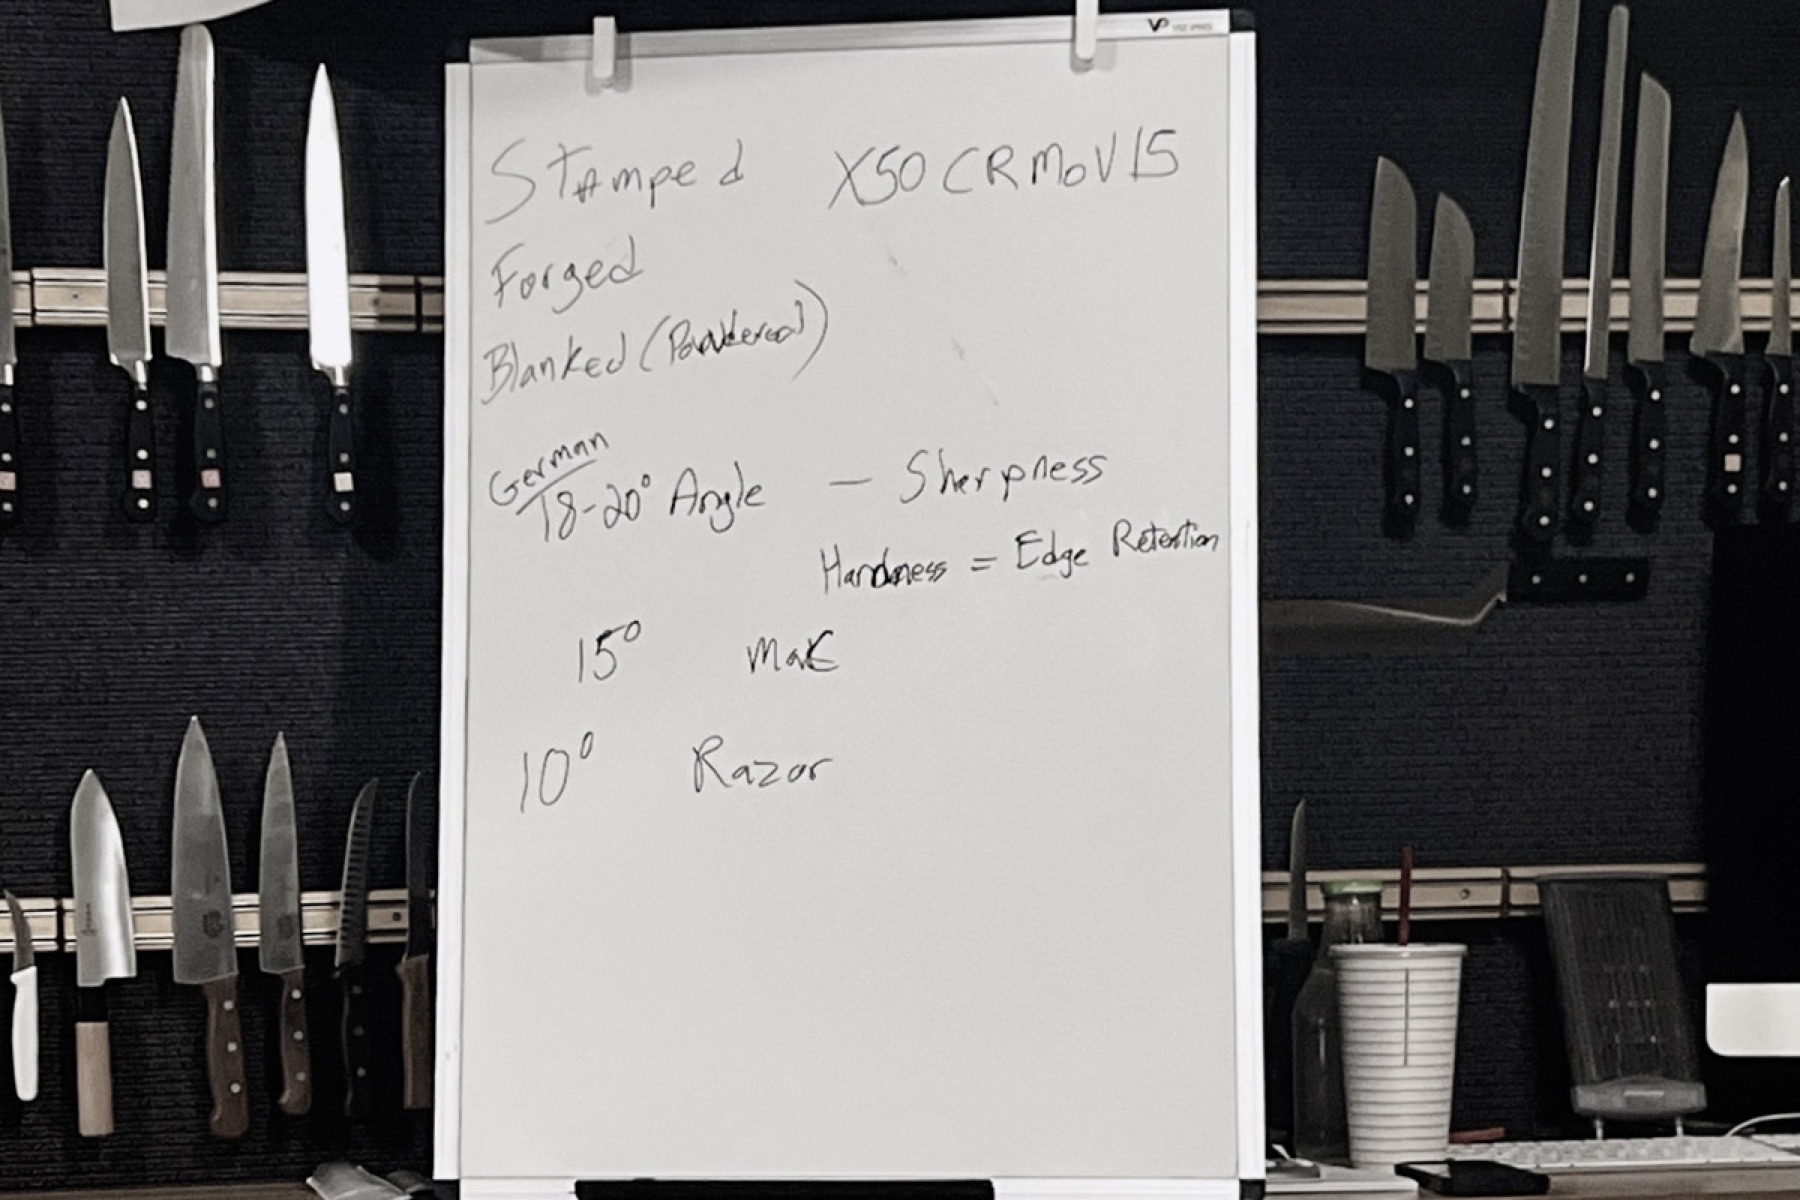 Stamped X50CRMoV15
Forged
Blanked (Powdered)
German
18-20° Angle — Sherpness
Hardness = Edge Retention
15° Mac
10° Razor